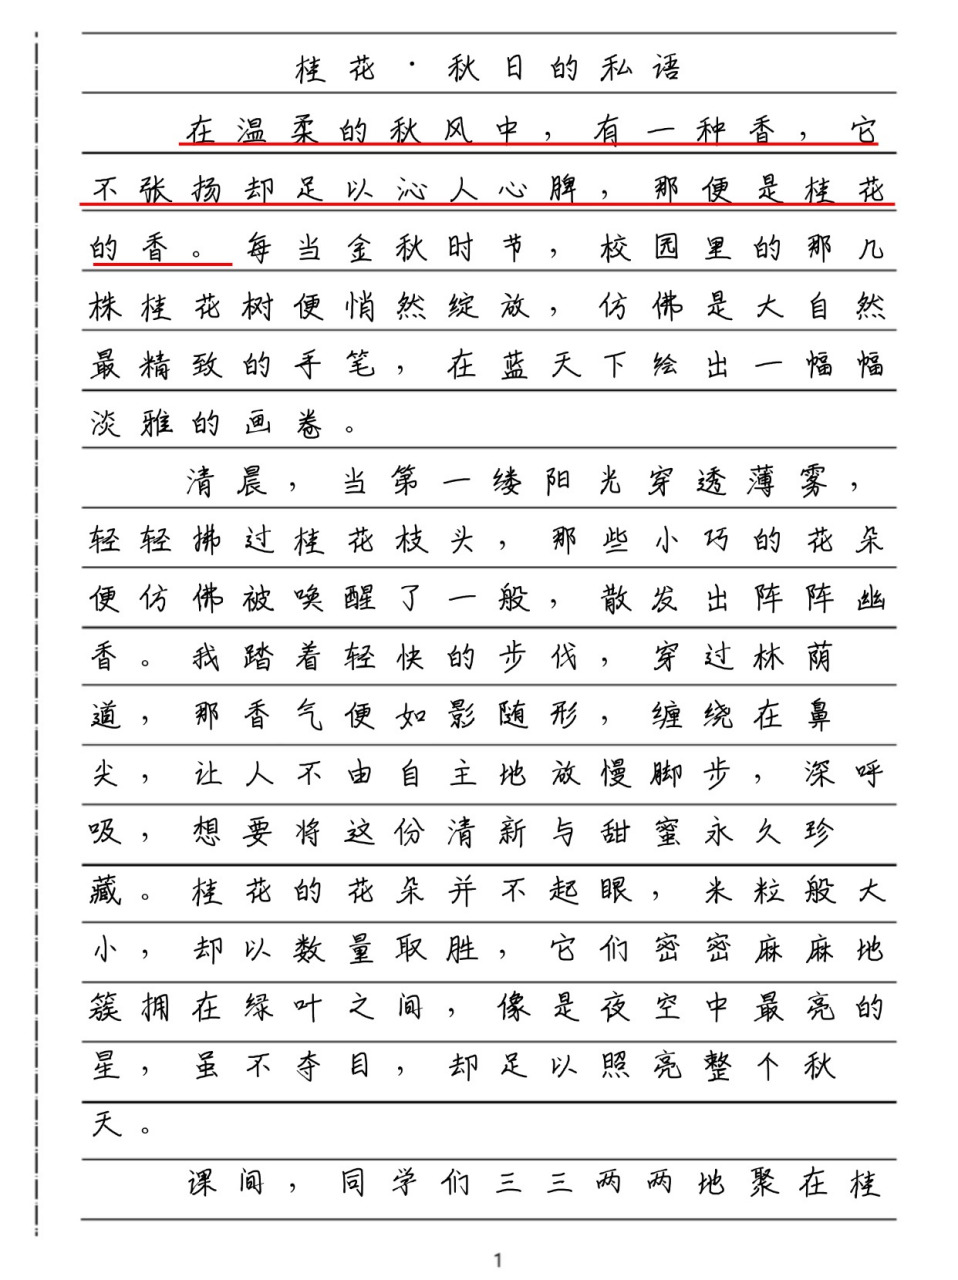 桂花·秋日的私语
在温柔的秋风中，有一种香，它
不张扬却足以沁人心脾，那便是桂花
的香。每当金秋时节，校园里的那几
株桂花树便悄然绽放，仿佛是大自然
最精致的手笔，在蓝天下绘出一幅幅
淡雅的画卷。
清晨，当第一缕阳光穿透薄雾，
轻轻拂过桂花枝头，那些小巧的花朵
便仿佛被唤醒了一般，散发出阵阵幽
香。我踏着轻快的步伐，穿过林荫
道，那香气便如影随形，缠绕在鼻
尖，让人不由自主地放慢脚步，深呼
吸，想要将这份清新与甜蜜永久珍
藏。桂花的花朵并不起眼，米粒般大
小，却以数量取胜，它们密密麻麻地
簇拥在绿叶之间，像是夜空中最亮的
星，虽不夺目，却足以照亮整个秋
天。
课间，同学们三三两两地聚在桂
1